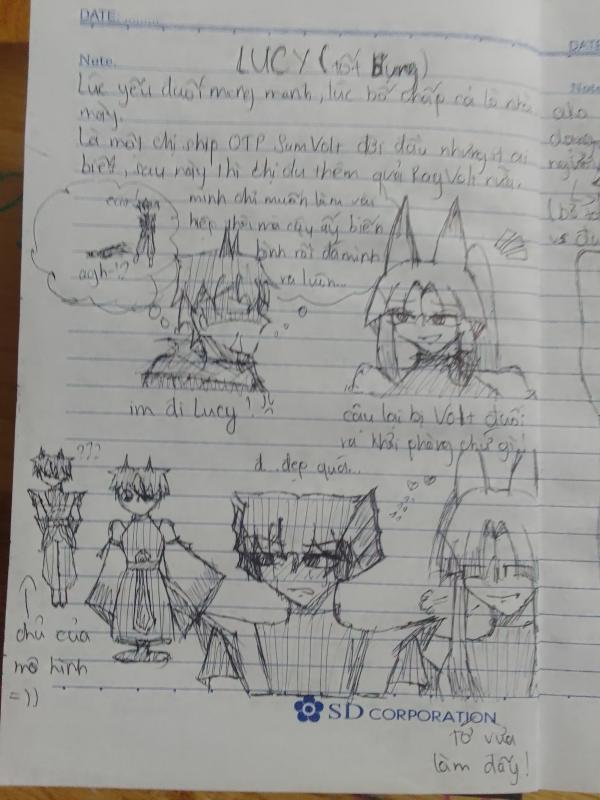 DATE:
Note.
LUCY (tốt bụng)
Lúc yếu đuối mong manh, lúc bố chấp cả lò nhà
mày.
Là một chị ship OTP SumVolt dời đầu nhưng ít ai
biết, sau này thì chị đu thêm quả RayVolt nữa.
mình chỉ muốn làm vài
thôi mà cậu ấy biến
bình rồi đá mình
ra luôn...
agh !?
im đi Lucy !
cậu lại bị Volt đuổi
ra khỏi phòng chứ gì!
đ..đẹp quá...
???
chủ của
mô hình
=))
SD CORPORATION
Tớ vừa
làm đấy!
DATE
Note